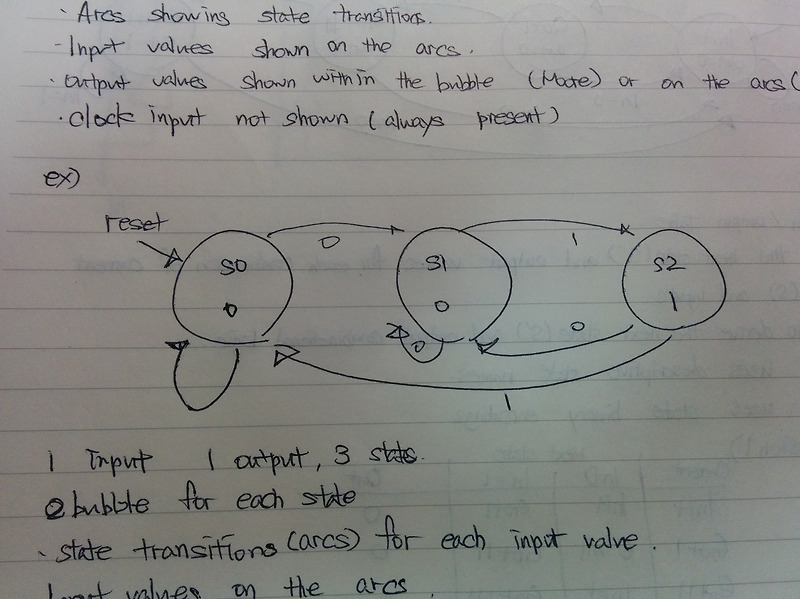 · Arcs showing state transitions.
- Input values shown on the arcs.
· output values shown within the bubble (Moore) or on the arcs (
· clock input not shown (always present)
ex)
reset
S0
0
0
S1
0
0
1
S2
1
0
1
1 Input 1 output, 3 state.
bubble for each state
· state transitions (arcs) for each input value.
Input values on the arcs